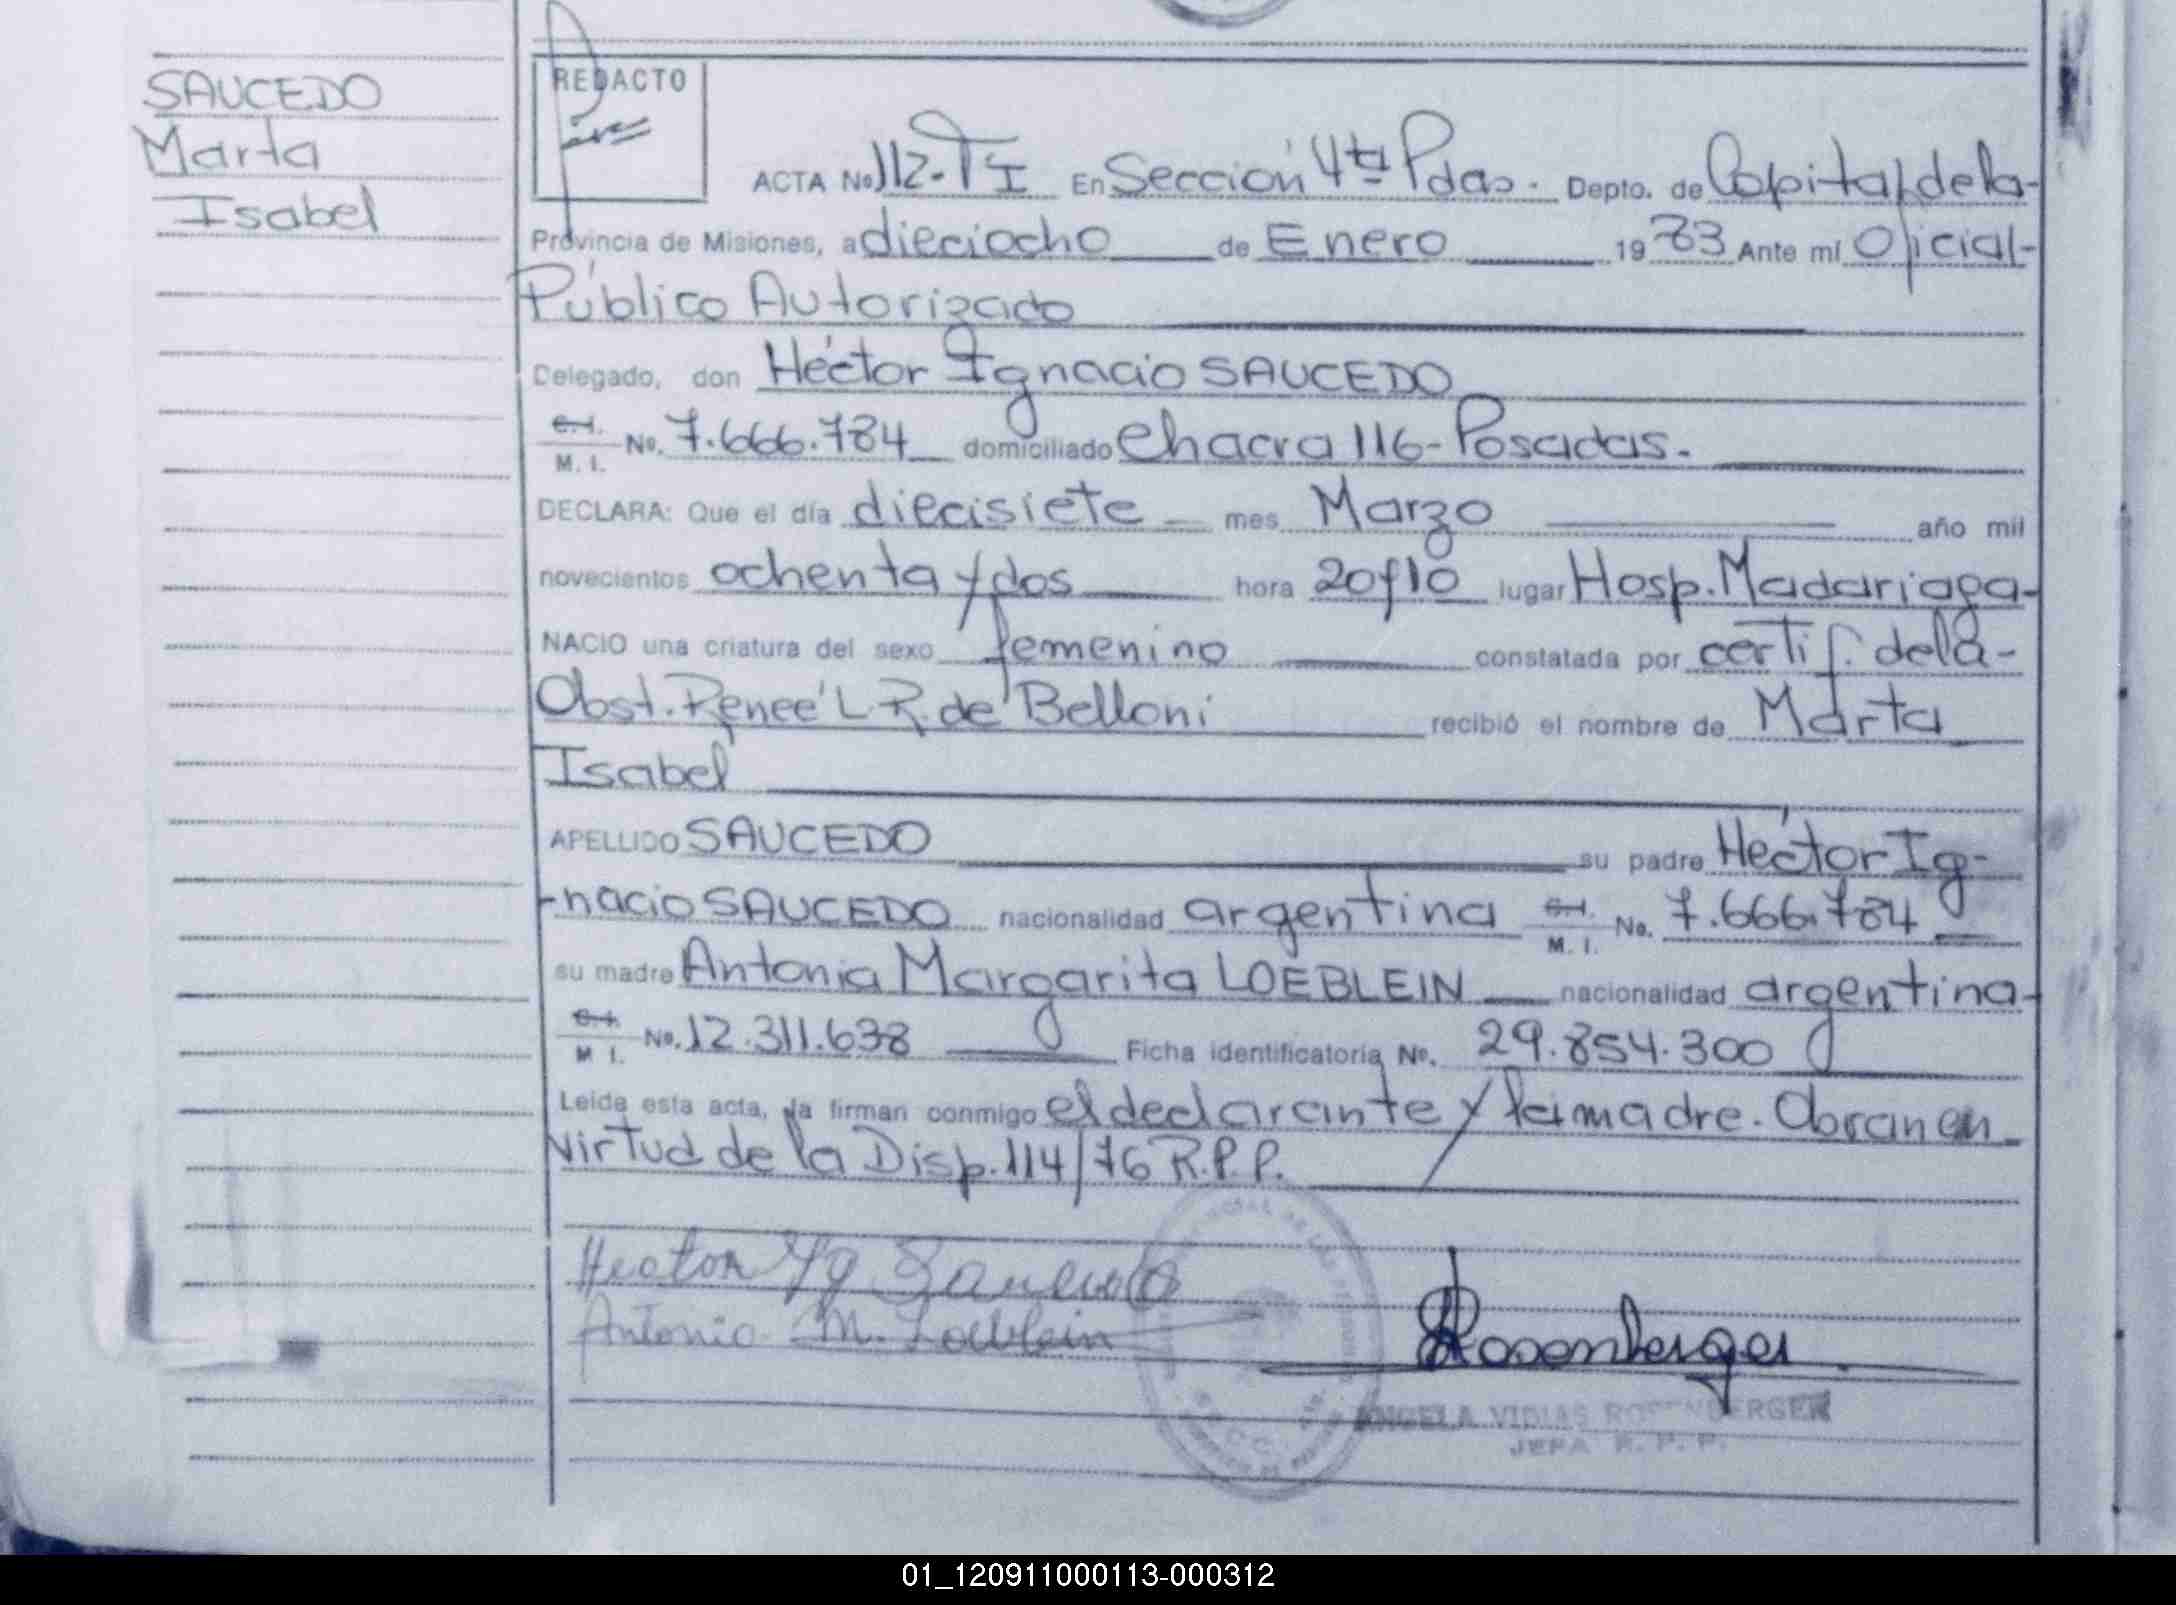 SAUCEDO
Marta
Isabel
REDACTO
ACTA No 112-TI En Sección 4ta Pdas. Depto. de Capital de la-
Provincia de Misiones, a dieciocho de Enero 1983 Ante mí Oficial-
Público Autorizado
Delegado, don Héctor Ignacio SAUCEDO
C.I. M. I. No. 7.666.784 domiciliado Chacra 116-Posadas.
DECLARA: Que el día diecisiete mes Marzo año mil
novecientos ochenta y dos hora 20y10 lugar Hosp. Madariaga-
NACIO una criatura del sexo femenino constatada por certif. de la-
Obst. Reneé L.R. de Belloni recibió el nombre de Marta
Isabel
APELLIDO SAUCEDO su padre Héctor Ig-
-nacio SAUCEDO nacionalidad argentina C.I. M. I. No. 7.666.784
su madre Antonia Margarita LOEBLEIN nacionalidad argentina-
C.I. M I. No. 12.311.638 Ficha identificatoria No. 29.854.300
Leida esta acta, la firman conmigo el declarante y la madre. Obran en
virtud de la Disp. 114/76 R.P.P.
Hector Yg Saucedo
Antonia M. Loeblein
Rosenberger
ANGELA VIDIAS ROSENBERGER
JEFA R. P. P.
01_120911000113-000312